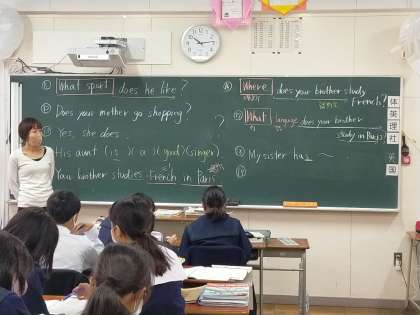 What sport does he like?
Does your mother go shopping?
Yes, she does
His aunt (is)(a)(good)(singer)
Your brother studies French in Paris
Where does your brother study
French?
What language does your brother
study in Paris
My sister has ~
体
英
理
社
英
国